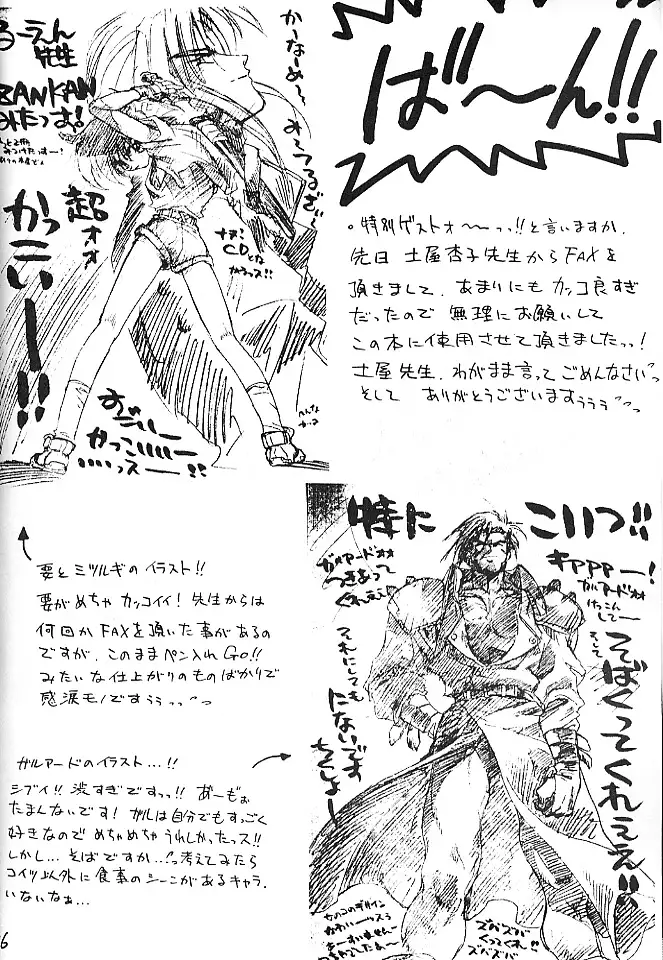 ば〜ん!!
。特別ゲストォ〜〜っっ!!と言いますか、
先日 土屋杏子先生からFAXを
頂きまして、あまりにも カッコ良すぎ
だったので 無理にお願いして
この本に使用させて頂きましたっっ!
土屋先生、わがまま言って ごめんなさいっ
そして ありがとうございますぅぅぅ
るーえん
先生
ZANKAN
みたっす!
超
オオ
かっこいー!!
かーなーめーっ
CDとな
すごいー
かっこいいいー
いいっスー!!
要と ミツルギの イラスト!!
要がめちゃ カッコイイ! 先生からは
何回か FAXを頂いた事があるの
ですが、このままペン入れ GO!!
みたいな仕上がりのものばかりで
感涙モノですぅぅっっ
特に こいつ!!
キアアアー!
ガルアードオオ
けっこん
してー
そして
そばくってくれええ!!
ガルアードオオ
つきあって
くれえ
それにしても
にないです
ちくしょー
女のコのデザイン
かわいーっスぅ
ズバズバ
くってくれ!!
ズバズバ
ガルアードのイラスト...!!
シブイ!! 渋すぎですっっ!! あーもぉ
たまんないです! ガルは自分でもすっごく
好きなので めちゃめちゃ うれしかったっス!!
しかし... そばですか... 考えてみたら
コイツ以外に食事のシーンがあるキャラ、
いないなぁ...
6